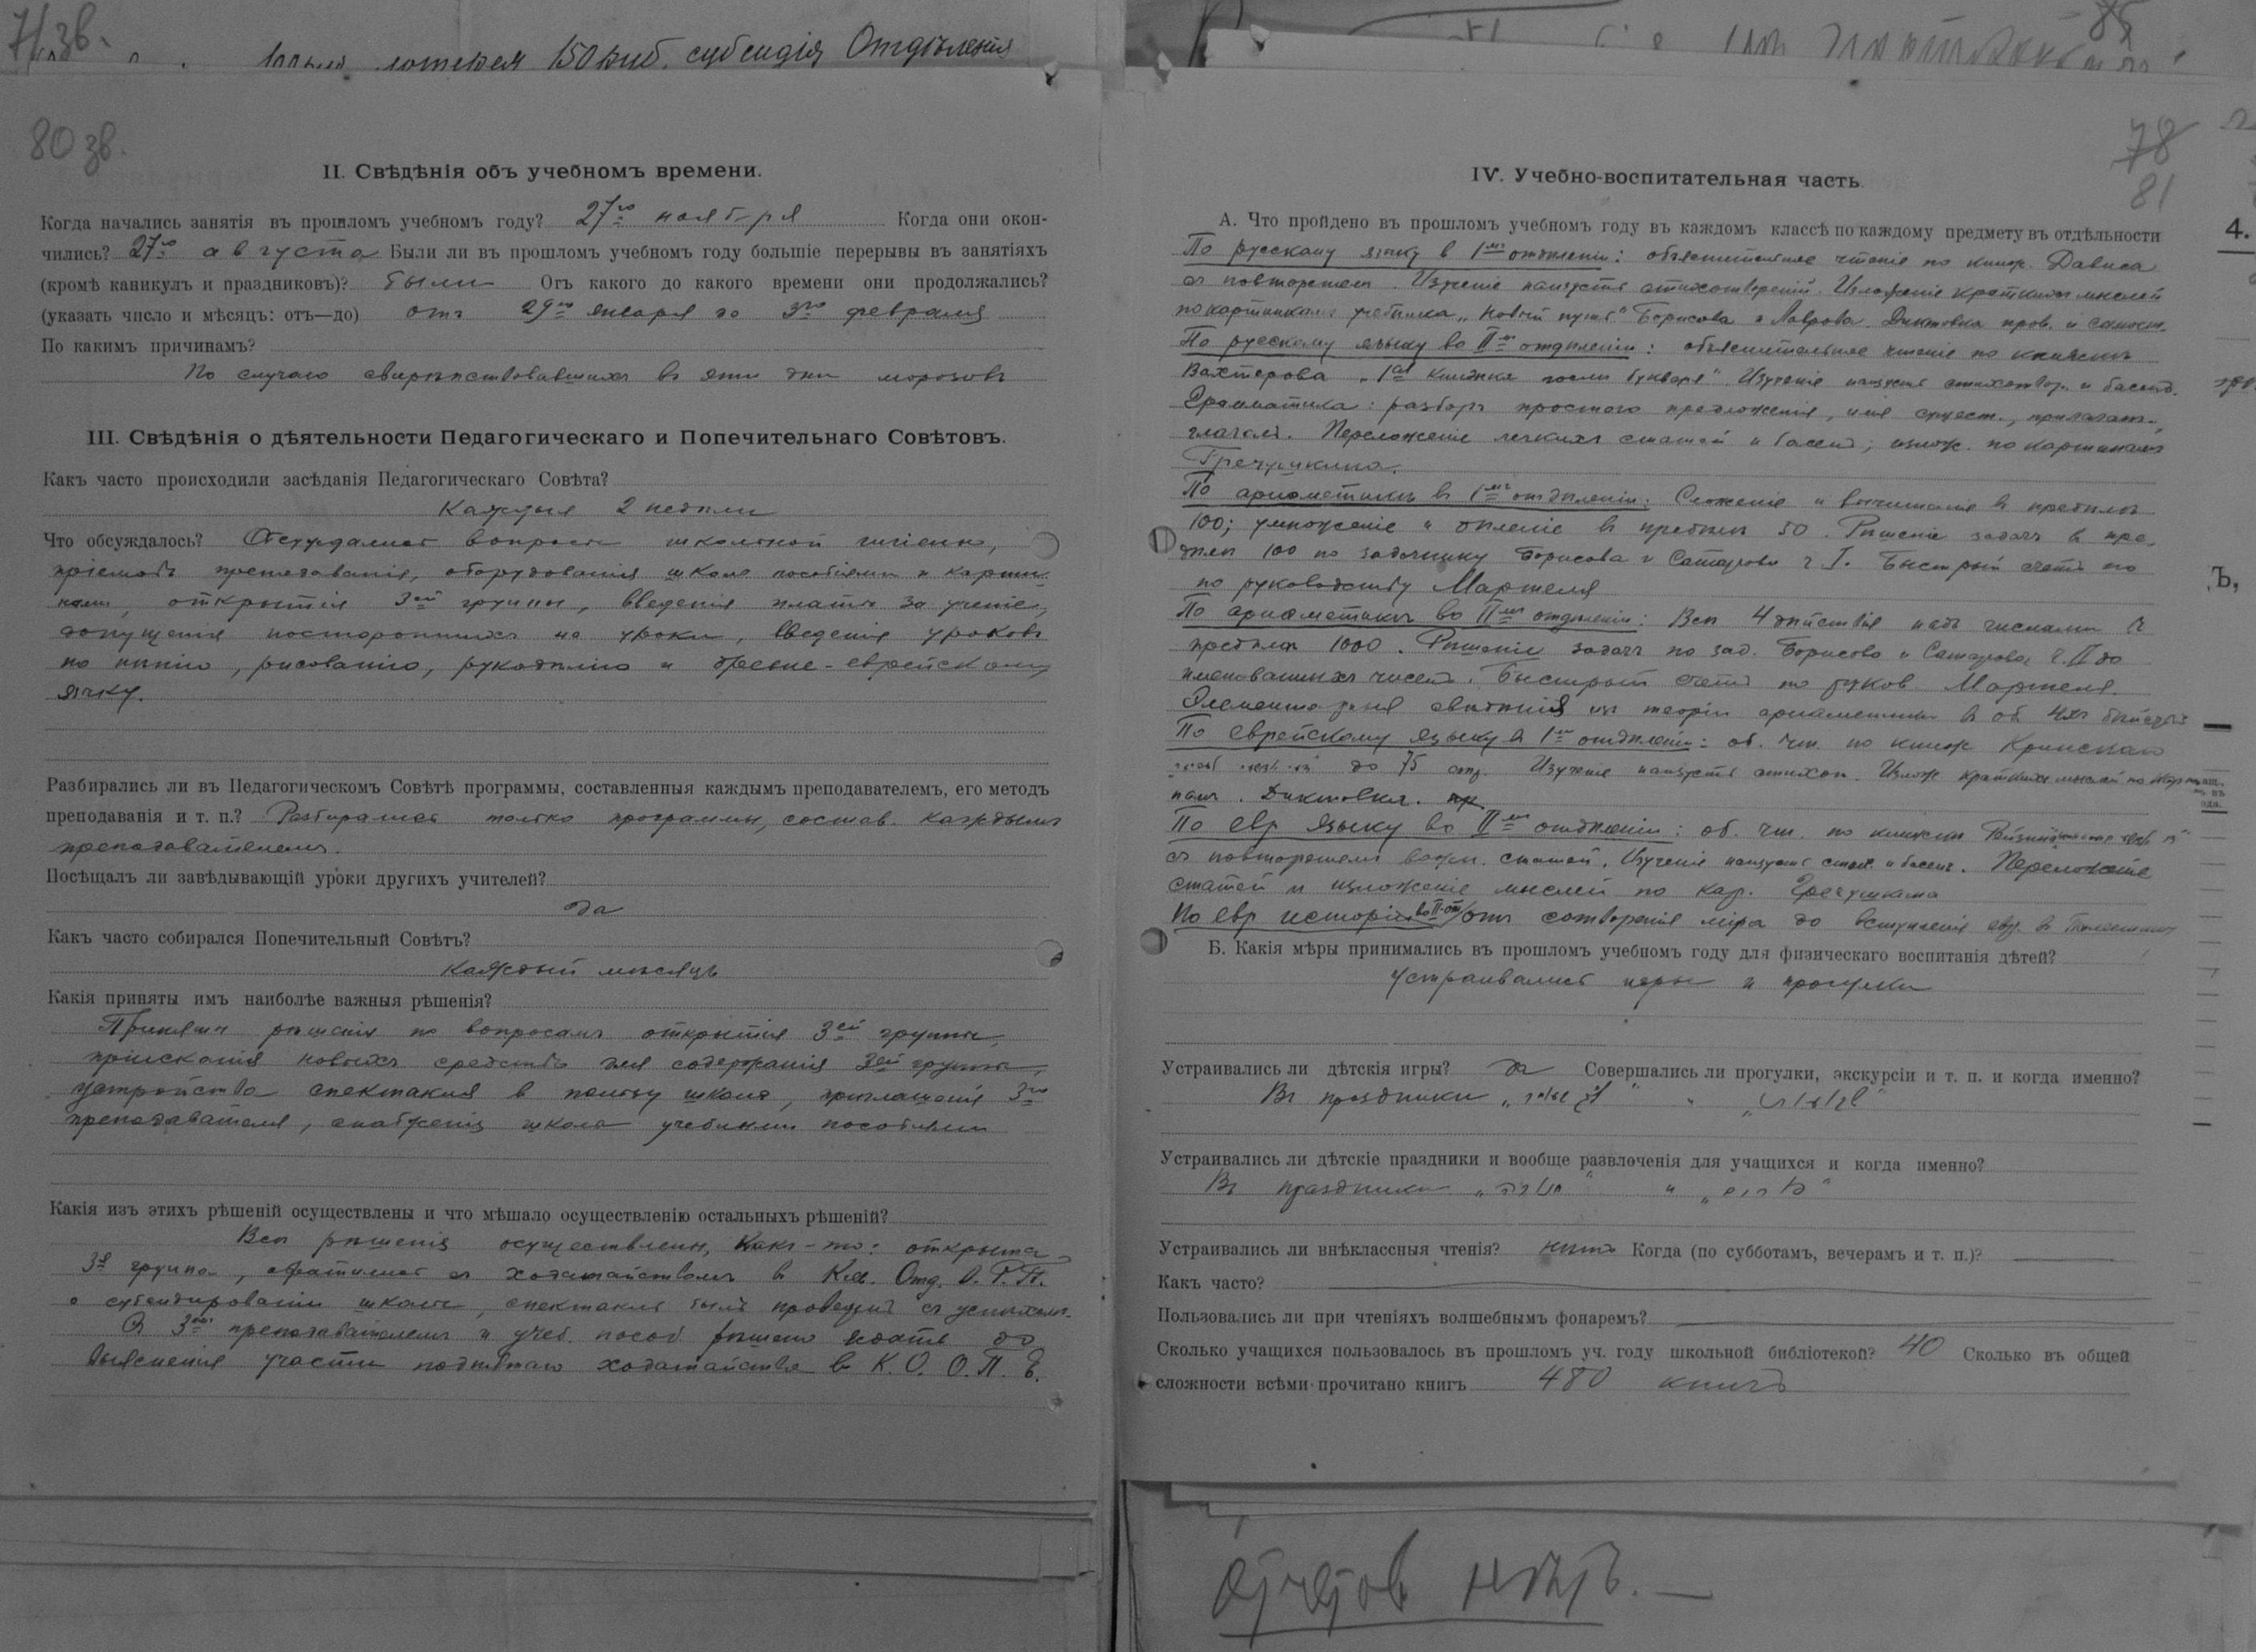 71 зв.
150 руб. субсидія Отдѣленія
80 зв.
II. Свѣдѣнія объ учебномъ времени.
Когда начались занятія въ прошломъ учебномъ году? 27го ноября Когда они окон-
чились? 27го августа Были ли въ прошломъ учебномъ году большіе перерывы въ занятіяхъ
(кромѣ каникулъ и праздниковъ)? были Отъ какого до какого времени они продолжались?
(указать число и мѣсяцъ: отъ—до) отъ 29го января до 3го февраля
По какимъ причинамъ?
По случаю свирѣпствовавшихъ въ эти дни морозовъ
III. Свѣдѣнія о дѣятельности Педагогическаго и Попечительнаго Совѣтовъ.
Какъ часто происходили засѣданія Педагогическаго Совѣта?
Каждыя 2 недѣли
Что обсуждалось? Обсуждались вопросы школьной гигіены,
пріемовъ преподаванія, оборудованія школы пособіями и карти-
нами, открытія 3ей группы, введенія платы за ученіе,
допущенія постороннихъ на уроки, введенія уроковъ
по пѣнію, рисованію, рукодѣлію и древне-еврейскому
языку.
Разбирались ли въ Педагогическомъ Совѣтѣ программы, составленныя каждымъ преподавателемъ, его методъ
преподаванія и т. п.? Разбирались только программы, состав. каждымъ
преподавателемъ.
Посѣщалъ ли завѣдывающій уроки другихъ учителей?
да
Какъ часто собирался Попечительный Совѣтъ?
каждый мѣсяцъ
Какія приняты имъ наиболѣе важныя рѣшенія?
Приняты рѣшенія по вопросамъ открытія 3ей группы,
пріисканія новыхъ средствъ для содержанія 3ей группы,
устройства спектакля в пользу школы, приглашенія 3го
преподавателя, снабженія школы учебными пособіями
Какія изъ этихъ рѣшеній осуществлены и что мѣшало осуществленію остальныхъ рѣшеній?
Всѣ рѣшенія осуществлены, какъ-то: открыта
3я группа, обратились съ ходатайствомъ в Кіев. Отд. О. Р. П.
о субсидированіи школы, спектакль былъ проведенъ съ успѣхомъ.
3мъ преподавателемъ и учеб. пособ рѣшено ждать до
выясненія участи поднятаго ходатайства в К. О. О. П. Е.
85
78
81
IV. Учебно-воспитательная часть.
А. Что пройдено въ прошломъ учебномъ году въ каждомъ классѣ по каждому предмету въ отдѣльности
По русскому языку в 1мъ отдѣленіи: объяснительное чтеніе по книж. Дависа
съ повтореніем. Изученіе наизусть стихотвореній. Изложеніе краткихъ мыслей
по картинкамъ учебника „Новый путь" Борисова и Лаврова. Диктовка пров. и самост.
По русскому языку во IIмъ отдѣленіи: объяснительное чтеніе по книжкѣ
Вахтерова „1ая книжка послѣ букваря". Изученіе наизусть стихотвор. и басенъ.
Грамматика: разборъ простого предложенія, имя сущест., прилагат.,
глаголъ. Переложеніе легкихъ статей и басенъ; излож. по картинамъ
Гречушкина.
По ариѳметикѣ в 1мъ отдѣленіи: Сложеніе и вычитаніе в предѣлѣ
100; умноженіе и дѣленіе в предѣлѣ 50. Рѣшеніе задачъ в пре-
дѣлѣ 100 по задачнику Борисова и Сатарова ч I. Быстрый счетъ по
по руководству Мартеля
По ариѳметикѣ во IIмъ отдѣленіи: Всѣ 4 дѣйствія надъ числами в
предѣлѣ 1000. Рѣшеніе задачъ по зад. Борисова и Сатарова ч. II до
именованныхъ чиселъ. Быстрый счетъ по руков Мартеля.
Элементарныя свѣдѣнія изъ теоріи ариѳметики в об. 4хъ дѣйств
По еврейскому языку в 1мъ отдѣленіи: об. чт. по книж Кринскаго
до 75 стр. Изученіе наизусть стихов. Излож краткихъ мыслей по карти-
намъ. Диктовка.
По евр языку во IIмъ отдѣленіи: об. чт. по книжкѣ
съ повтореніемъ важн. статей. Изученіе наизусть стих. и басенъ. Переложеніе
статей и изложеніе мыслей по кар. Гречушкина
По евр исторіи во II от. отъ сотворенія міра до вступленія евр. в Палестину
Б. Какія мѣры принимались въ прошломъ учебномъ году для физическаго воспитанія дѣтей?
Устраивались игры и прогулки
Устраивались ли дѣтскія игры? да Совершались ли прогулки, экскурсіи и т. п. и когда именно?
Въ праздники
Устраивались ли дѣтскіе праздники и вообще развлеченія для учащихся и когда именно?
Въ праздники
Устраивались ли внѣклассныя чтенія? нѣтъ Когда (по субботамъ, вечерамъ и т. п.)?
Какъ часто?
Пользовались ли при чтеніяхъ волшебнымъ фонаремъ?
Сколько учащихся пользовалось въ прошломъ уч. году школьной библіотекой? 40 Сколько въ общей
сложности всѣми прочитано книгъ 480 книгъ
4.
Ъ,
отчетовъ нѣтъ. —